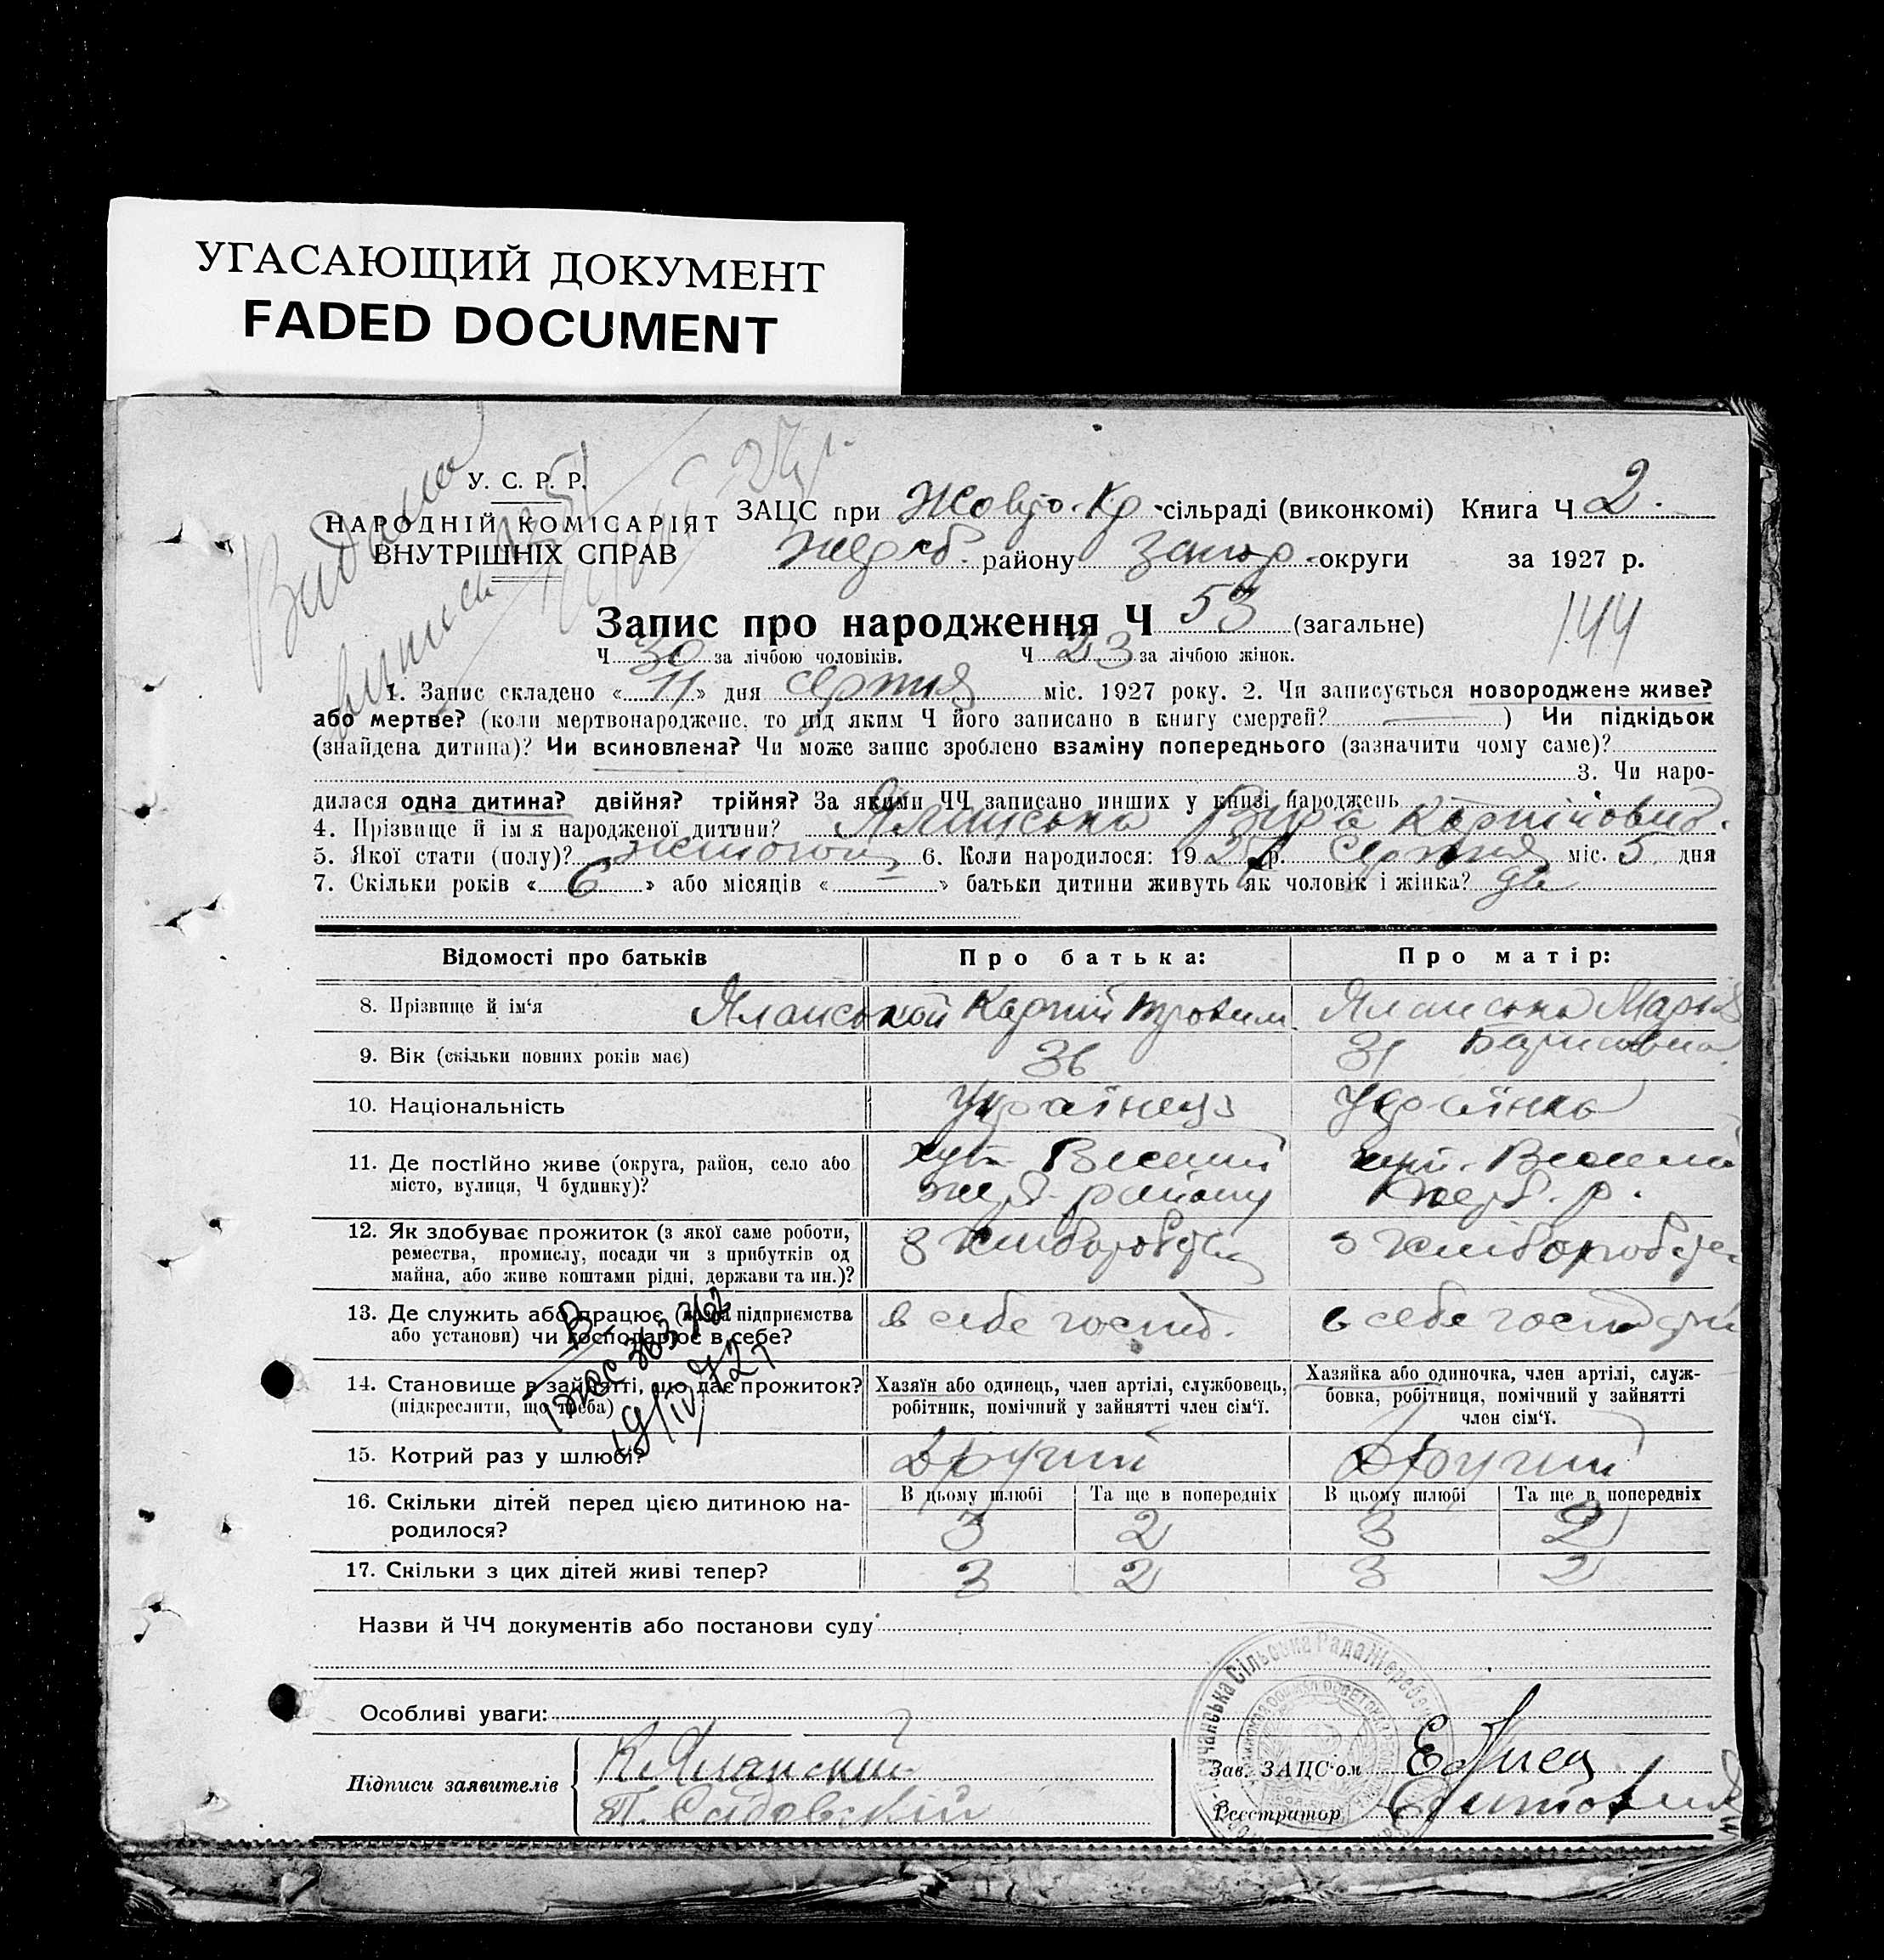 УГАСАЮЩИЙ ДОКУМЕНТ
FADED DOCUMENT
У. С. Р. Р.
НАРОДНІЙ КОМІСАРІЯТ
ВНУТРІШНІХ СПРАВ
Видано
виписи
ЗАЦС при Жовто-Кр сільраді (виконкомі) Книга Ч 2.
Жереб. району Запор. округи за 1927 р.
Запис про народження Ч 53 (загальне)
144
Ч 30 за лічбою чоловіків. Ч 23 за лічбою жінок.
1. Запис складено « 11 » дня серпня міс. 1927 року. 2. Чи записується новороджене живе?
або мертве? (коли мертвонароджене, то під яким Ч його записано в книгу смертей? —) Чи підкідьок
(знайдена дитина)? Чи всиновлена? Чи може запис зроблено взаміну попереднього (зазначити чому саме)?
3. Чи наро-
дилася одна дитина? двійня? трійня? За якими ЧЧ записано инших у книзі народжень
4. Прізвище й ім'я народженої дитини? Яланська Віра Карпіновна.
5. Якої стати (полу)? жіночої 6. Коли народилося: 1927 р. Серпня міс. 5 дня
7. Скільки років « 6 » або місяців « — » батьки дитини живуть як чоловік і жінка? да
Відомості про батьків Про батька: Про матір:
8. Прізвище й ім'я Яланськой Карпій Трохим. Яланська Марія
9. Вік (скільки повних років має) 36 31
10. Національність Українец Українка
11. Де постійно живе (округа, район, село або
місто, вулиця, Ч будинку)?
хут. Веселий
Жереб. району
хут. Веселий
Жереб. р.
12. Як здобуває прожиток (з якої саме роботи,
ремества, промислу, посади чи з прибутків од
майна, або живе коштами рідні, держави та ин.)?
з хліборобства
з хліборобства
13. Де служить або працює (назва підприємства
або установи) чи господарює в себе?
в себе господ.
в себе господ
14. Становище в зайнятті, що дає прожиток?
(підкреслити, що треба)
Хазяїн або одинець, член артілі, службовець,
робітник, помічний у зайнятті член сім'ї.
Хазяйка або одиночка, член артілі, служ-
бовка, робітниця, помічний у зайнятті
член сім'ї.
19/IV 72 г
15. Котрий раз у шлюбі? Другий Другий
16. Скільки дітей перед цією дитиною на-
родилося?
В цьому шлюбі Та ще в попередніх В цьому шлюбі Та ще в попередніх
3 2 3 2
17. Скільки з цих дітей живі тепер? 3 2 3 2
Назви й ЧЧ документів або постанови суду
Особливі уваги:
Підписи заявителів
К Яланский
Т. Садовский
Зав. ЗАЦС'ом
Реєстратор
Сільська Рада Жереб